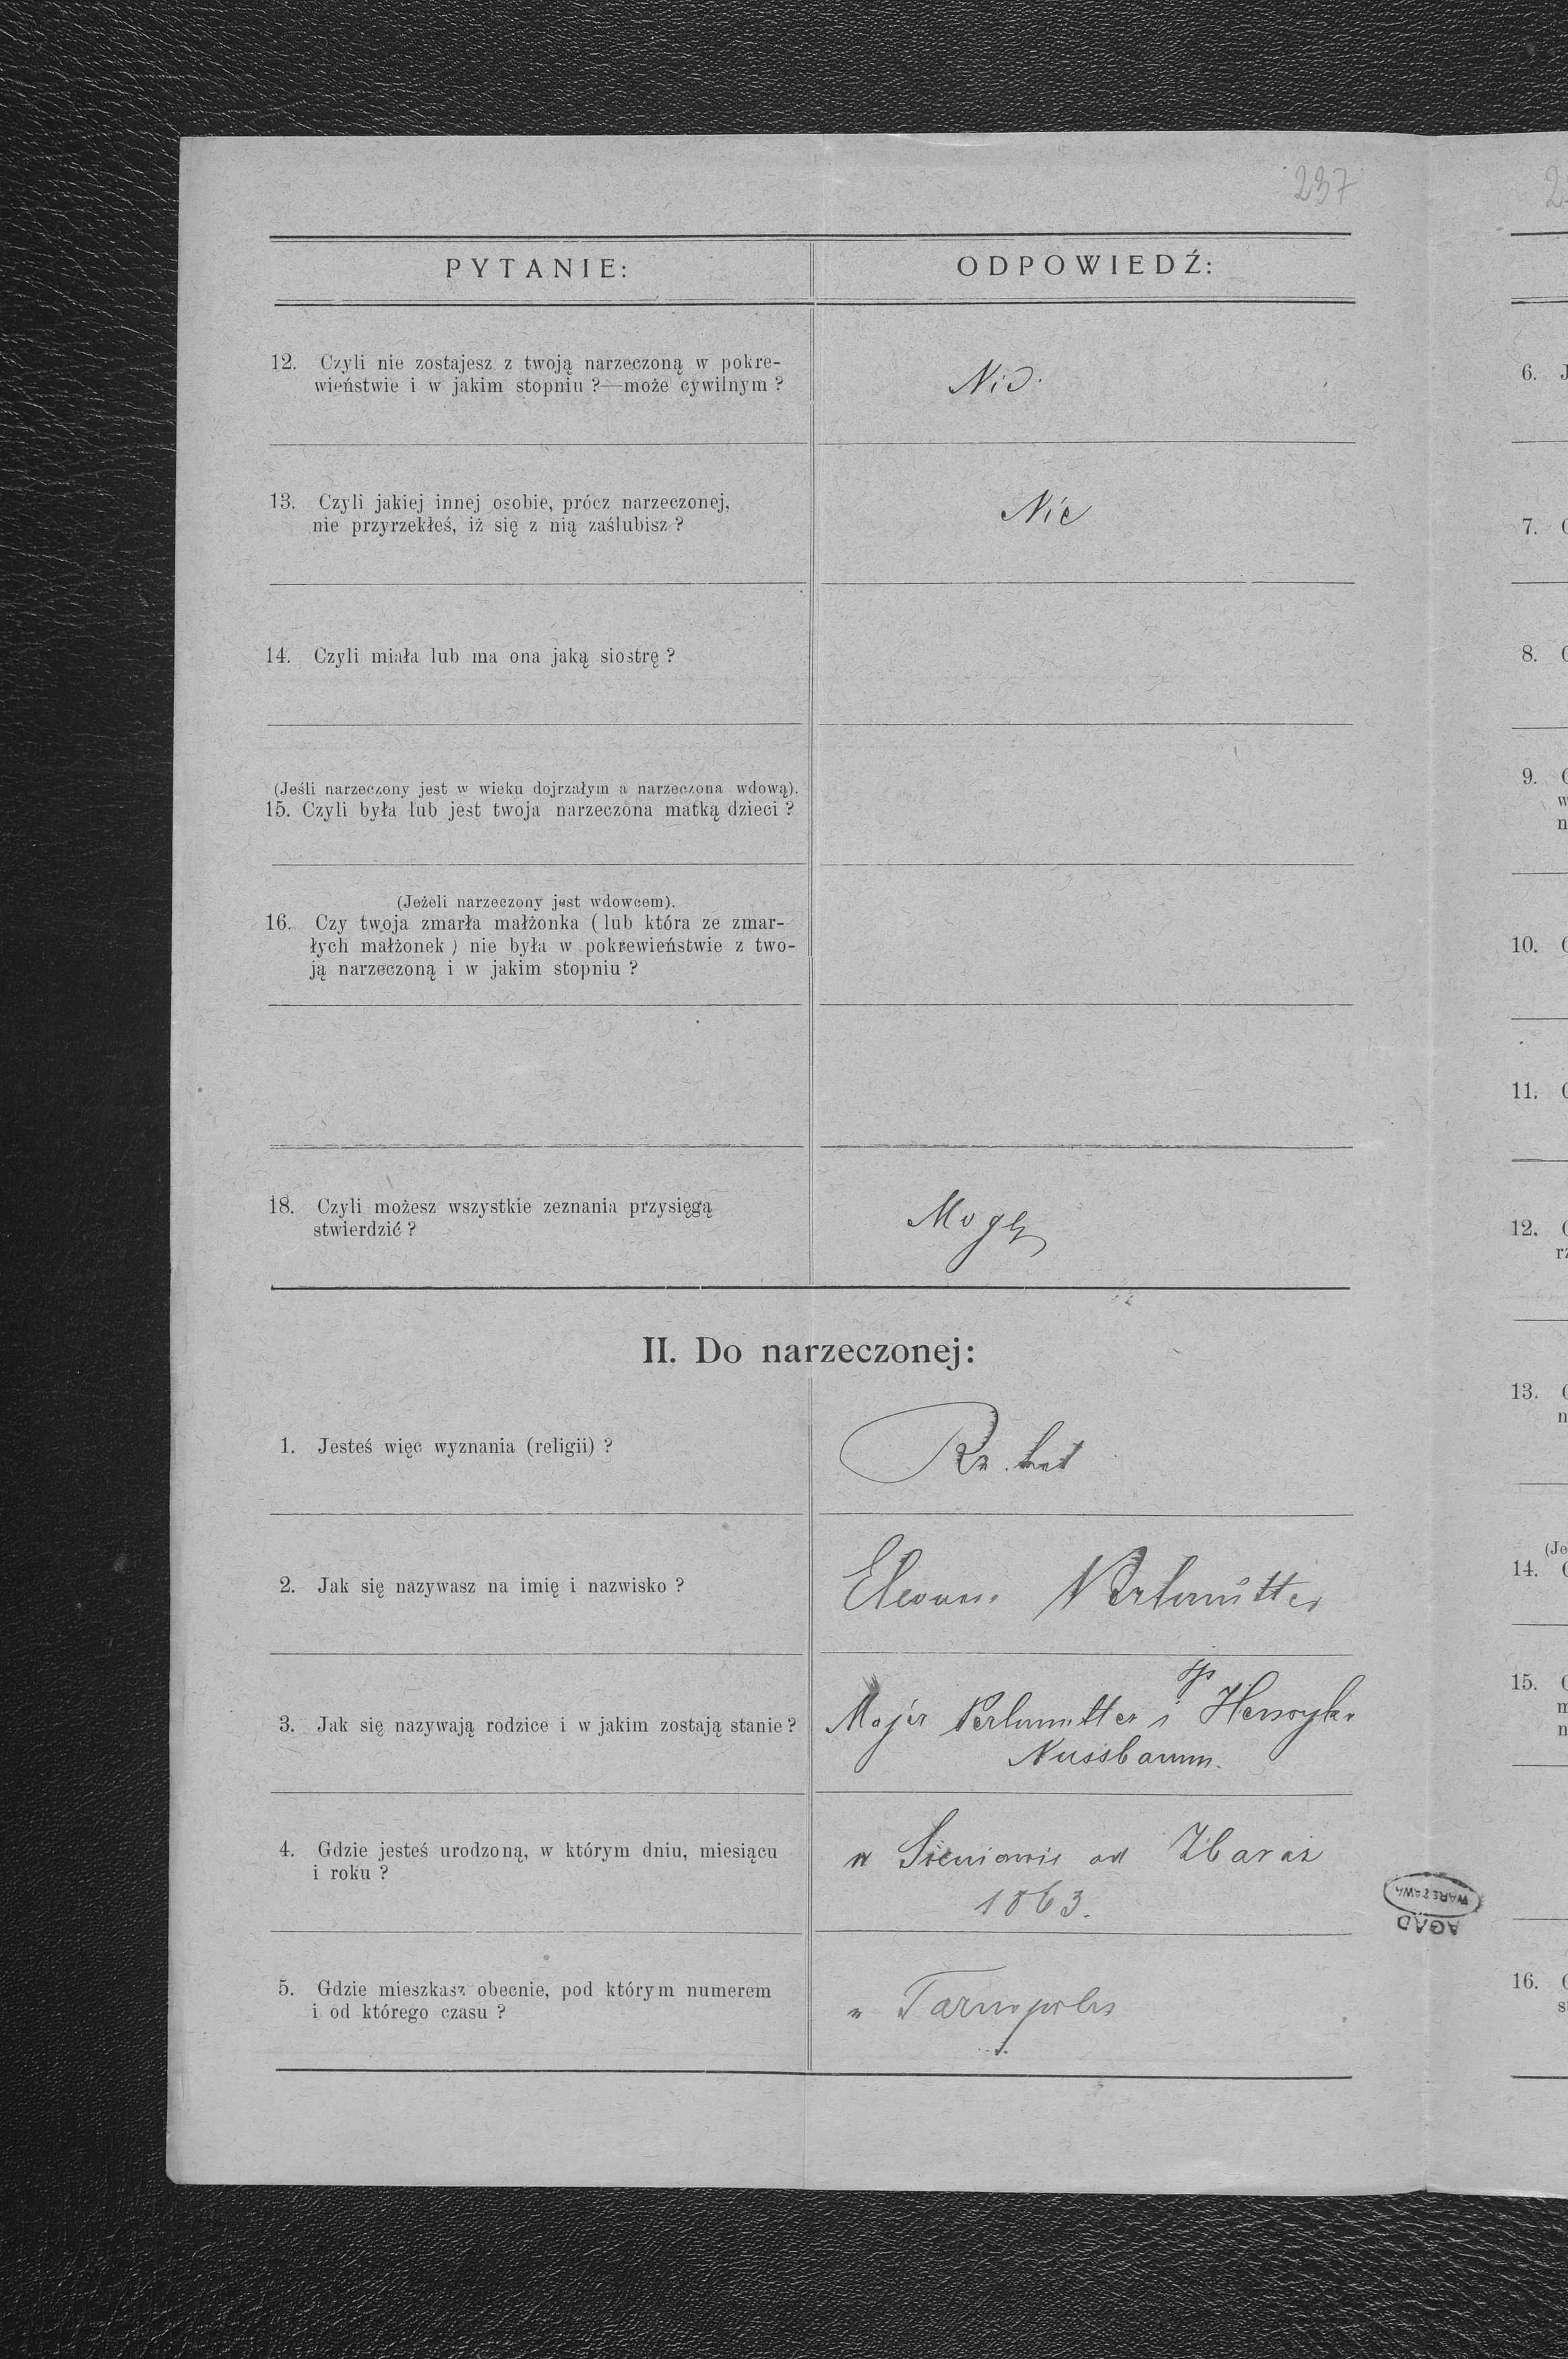 237
PYTANIE: ODPOWIEDŹ:
12. Czyli nie zostajesz z twoją narzeczoną w pokre-
wieństwie i w jakim stopniu ?—może cywilnym ?
Nie.
13. Czyli jakiej innej osobie, prócz narzeczonej,
nie przyrzekłeś, iż się z nią zaślubisz ?
Nie
14. Czyli miała lub ma ona jaką siostrę ?
(Jeśli narzeczony jest w wieku dojrzałym a narzeczona wdową).
15. Czyli była lub jest twoja narzeczona matką dzieci ?
(Jeżeli narzeczony jest wdowcem).
16. Czy twoja zmarła małżonka (lub która ze zmar-
łych małżonek) nie była w pokrewieństwie z two-
ją narzeczoną i w jakim stopniu ?
18. Czyli możesz wszystkie zeznania przysięgą
stwierdzić ?
Mogę
II. Do narzeczonej:
1. Jesteś więc wyznania (religii) ?
Rz. kat
2. Jak się nazywasz na imię i nazwisko ?
Eleonora Perlmutter
3. Jak się nazywają rodzice i w jakim zostają stanie ?
Majer Perlmutter i śp
Nussbaum.
4. Gdzie jesteś urodzoną, w którym dniu, miesiącu
i roku ?
w Sieniawie ad Zbaraż
1863.
5. Gdzie mieszkasz obecnie, pod którym numerem
i od którego czasu ?
w Tarnopolu
WARSZAWA
AGAD
6.
7.
8.
9.
10.
11.
12.
13.
14.
15.
16.